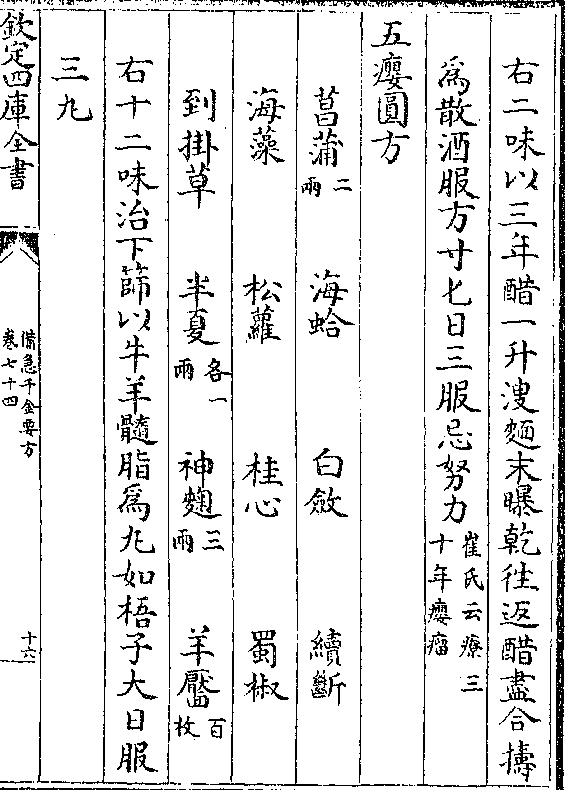 右二味以三年醋一升溲麵末曝乾往返醋盡合擣
爲散酒服方寸匕日三服忌努力崔氏云療三十年癭瘤
五癭圓方
菖蒲二兩 海蛤 白斂 續斷
海藻 松蘿 桂心 蜀椒
到掛草 半夏各一兩 神麴三兩 羊靨百枚
右十二味治下篩以牛羊髓脂爲丸如梧子大日服
三丸
欽定四庫全書
備急千金要方
卷七十四
十六